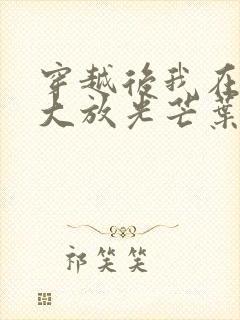 穿越後我在
大放光芒葉
祁笑笑